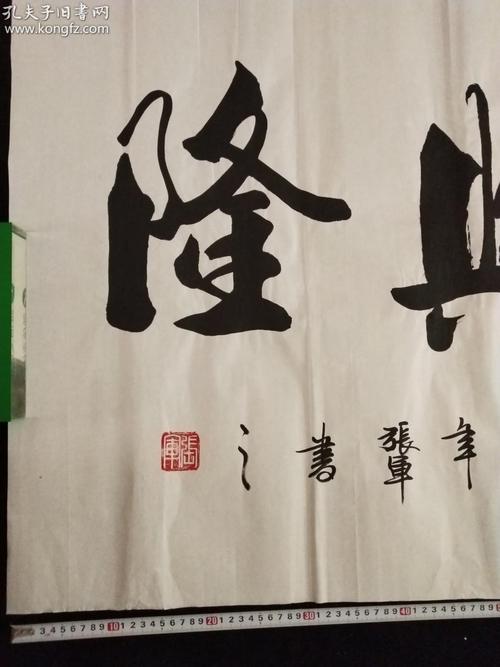 孔夫子旧书网
www.kongfz.com
隆
年張軍書之
張軍
3 4 5 6 7 8 9 10 1 2 3 4 5 6 7 8 9 20 1 2 3 4 5 6 7 8 9 30 1 2 3 4 5 6 7 8 9 40 1 2 3 4 5 6 7 8 9